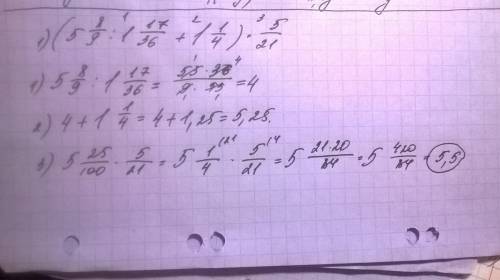 1) (5 8/9 : 1 17/36 + 1 1/4) · 5/21
1) 5 8/9 : 1 17/36 = 53 · 36/9 · 53 = 4
2) 4 + 1 1/4 = 4 + 1,25 = 5,25.
3) 5 25/100 · 5/21 = 5 1/4 · 5/21 = 5 21·20/84 = 5 420/84 = 5,5